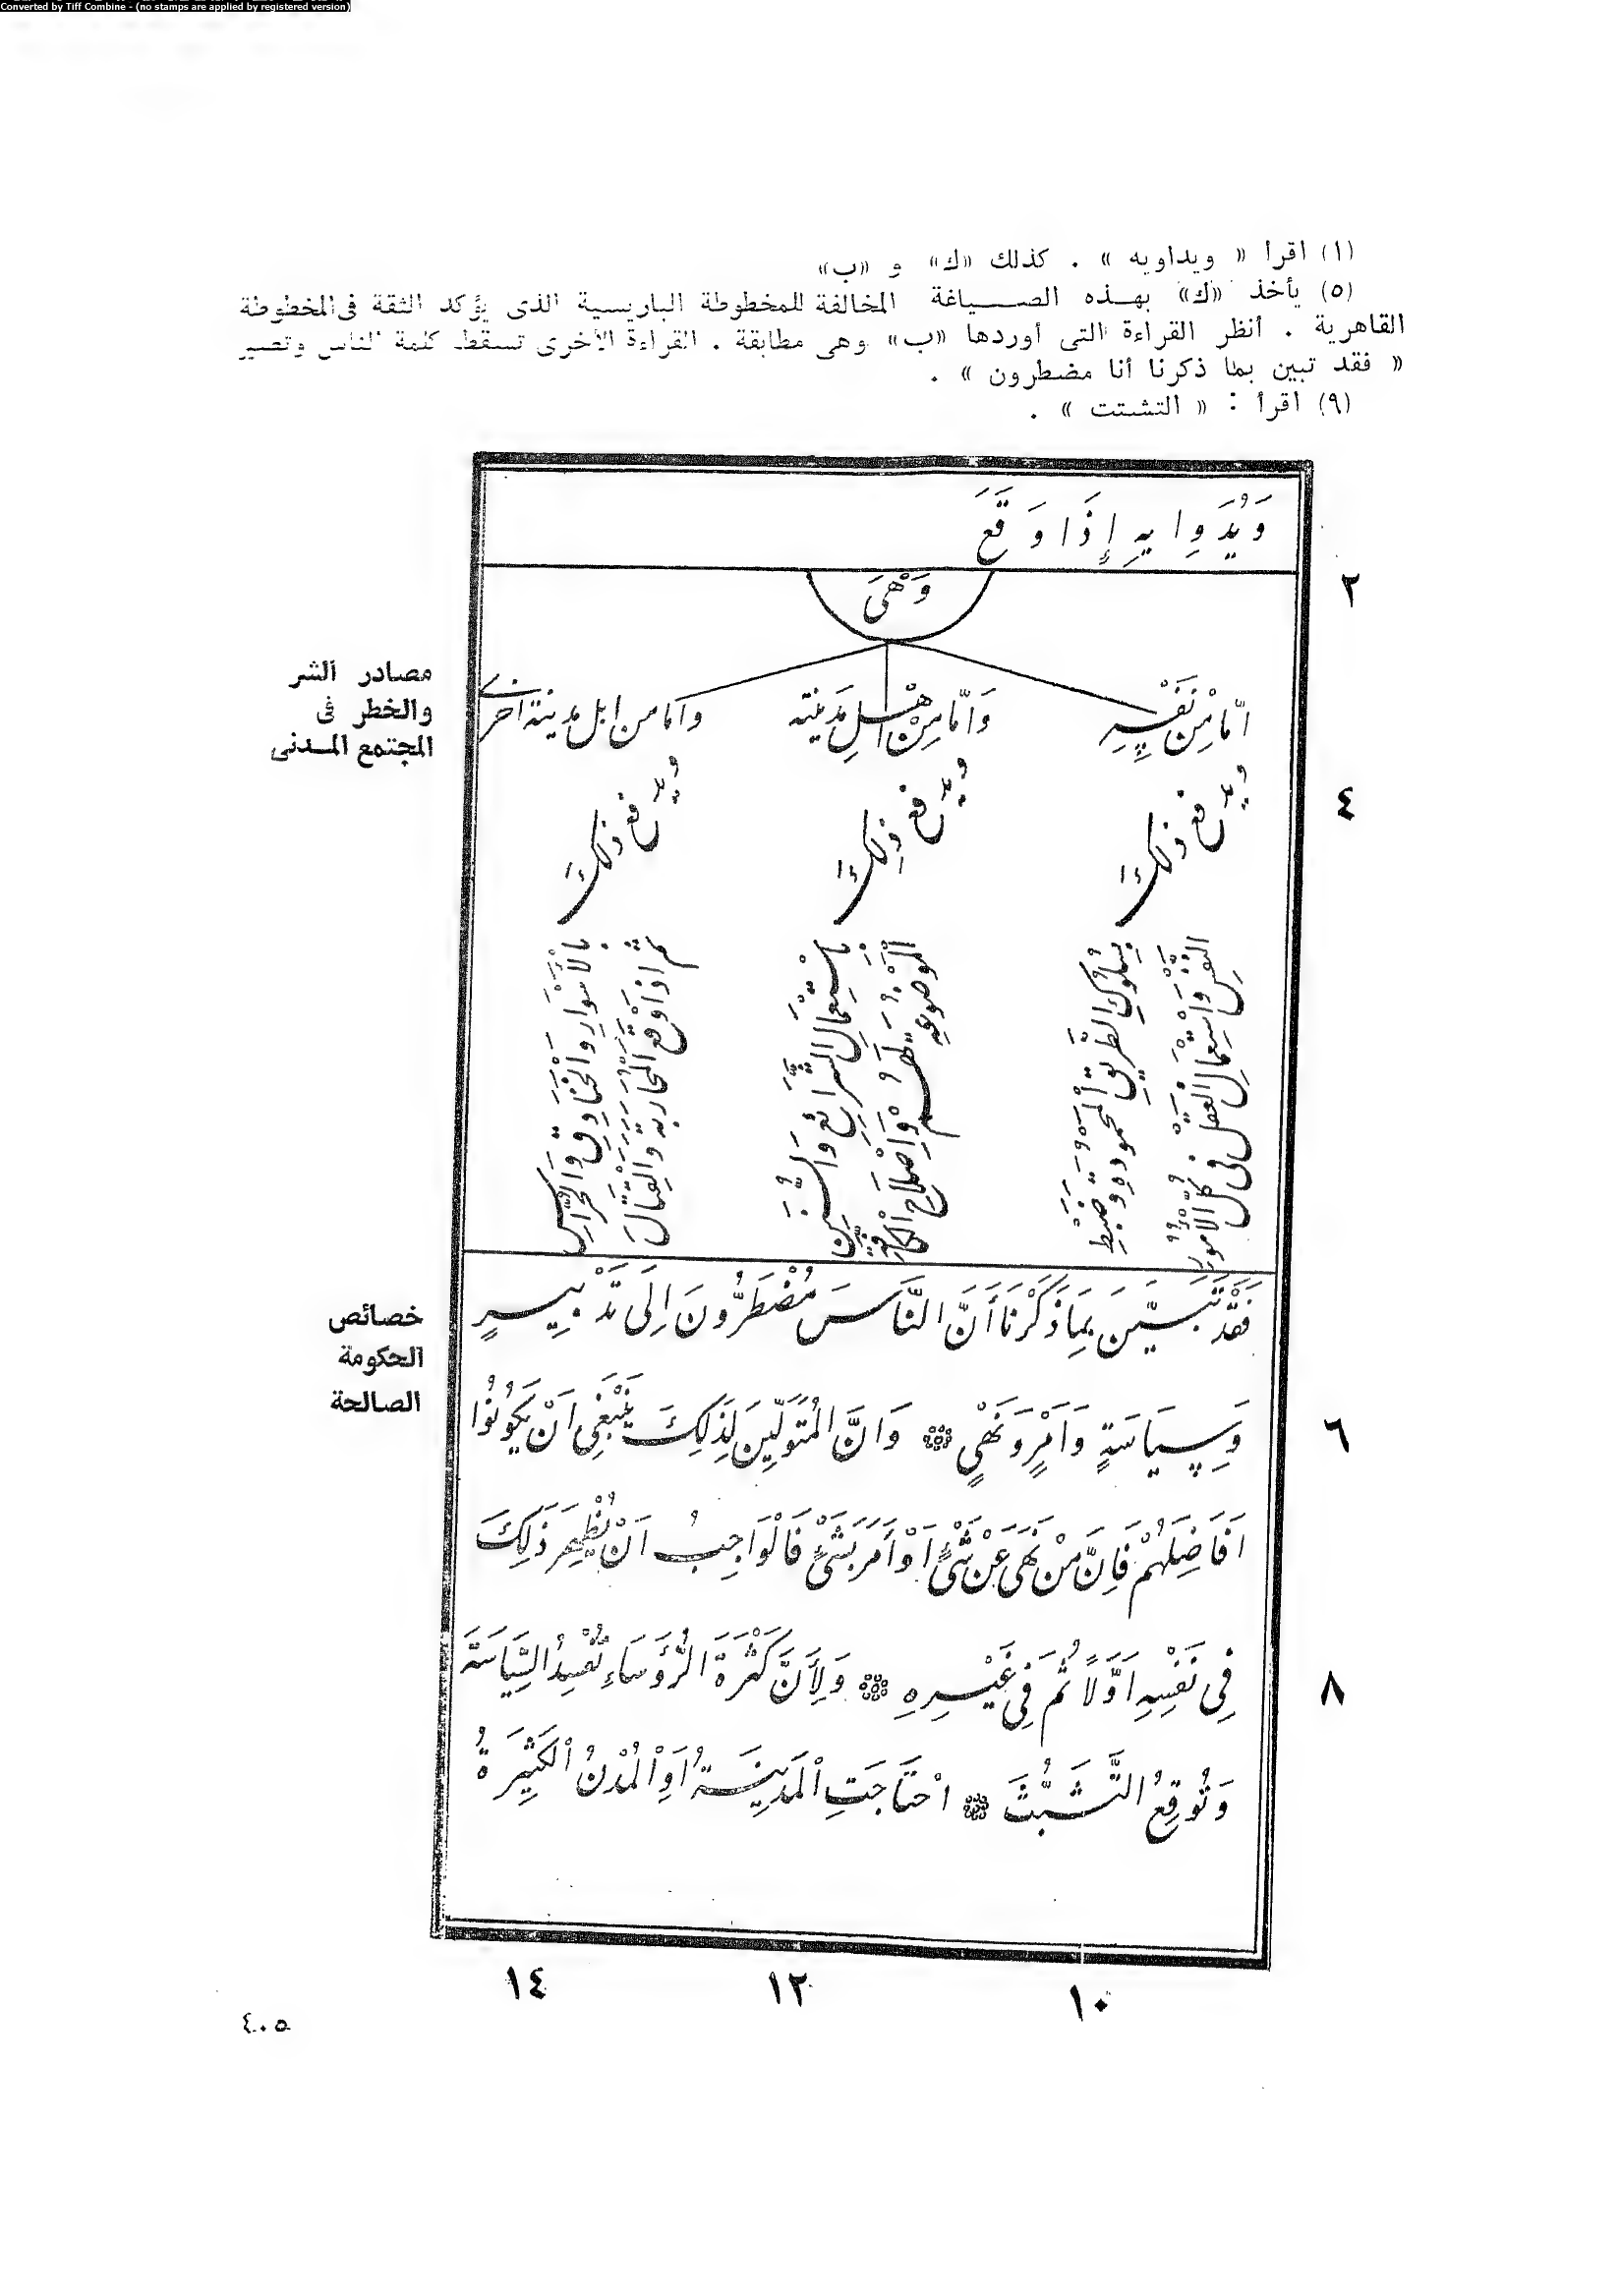 Converted by Tiff Combine - (no stamps are applied by registered version)
(١) اقرأ « ويداويه » . كذلك «ك» و «ب»
(٥) يأخذ «ك» بهذه الصياغة المخالفة للمخطوطة الباريسية الذى يؤكد الثقة فى المخطوطة
القاهرية . أنظر القراءة التى أوردها «ب» وهى مطابقة . القراءة الأخرى تسقط كلمة الناس وتصير
« فقد تبين بما ذكرنا أنا مضطرون » .
(٩) اقرأ : « التشتت » .
وَيُدَوِايهِ إِذَا وَقَعَ
٢
وَهْىَ
مصادر الشر
والخطر فى
المجتمع المدنى
امّا مِنْ نَفْسِهِ
وَامّا مِنْ اهْلِ مَدِينته
واما من اهل مدينة اخرى
٤
ويدفع ذلكَ
ويدفع ذلكَ
ويدفع ذلكَ
بِسُلوكِ الطَّريقِ المحموده وَضَبْطِ
النَّفْسِ وَاسْتِعْمَالِ الْعَقْلِ فى كلّ الأمورِ
بِاسْتِعْمَالِ الشَّرائع وَالسُّنَنِ
الْمَوْضُوعه لَهُم وَاِصْلاح الكافّة
بالْأَسْوَارِ والخَنادِقِ وَالحُرَّاسِ
ثم اذا وَقع المحاربة وَالقِتَال
خصائص
الحكومة
الصالحة
فَقَدْ تَبَيَّنَ بِمَا ذَكَرْنَا أَنَّ النَّاسَ مُضْطَرُّونَ اِلَى تَدْبِيرٍ
٦
وَسِيَاسَةٍ وَاَمْرٍ وَنَهْيٍ ۞ وَانَّ الْمُتَوَلِّينَ لِذَلِكَ يَنْبَغِى اَنْ يَكُونُوا
اَفَاضِلَهُمْ فَاِنَّ مَنْ نَهَى عَنْ شَىْءٍ اَوْ أَمَرَ بَشَىْءٍ فَالْوَاجِبُ اَنْ يُظْهِرَ ذَلِكَ
٨
فِى نَفْسِهِ اَوَّلاً ثُمَّ فِى غَيْرِهِ ۞ وَلِأَنَّ كَثْرَةَ الرُّؤَسَاءِ تُفْسِدُ السِّيَاسَةَ
وَتُوقِعُ التَّشَبُّثَ ۞ احْتَاجَتِ الْمَدِينَةُ اَوِ الْمُدْنُ الْكَثِيرَةُ
١٠ ١٢ ١٤
٤٠٥